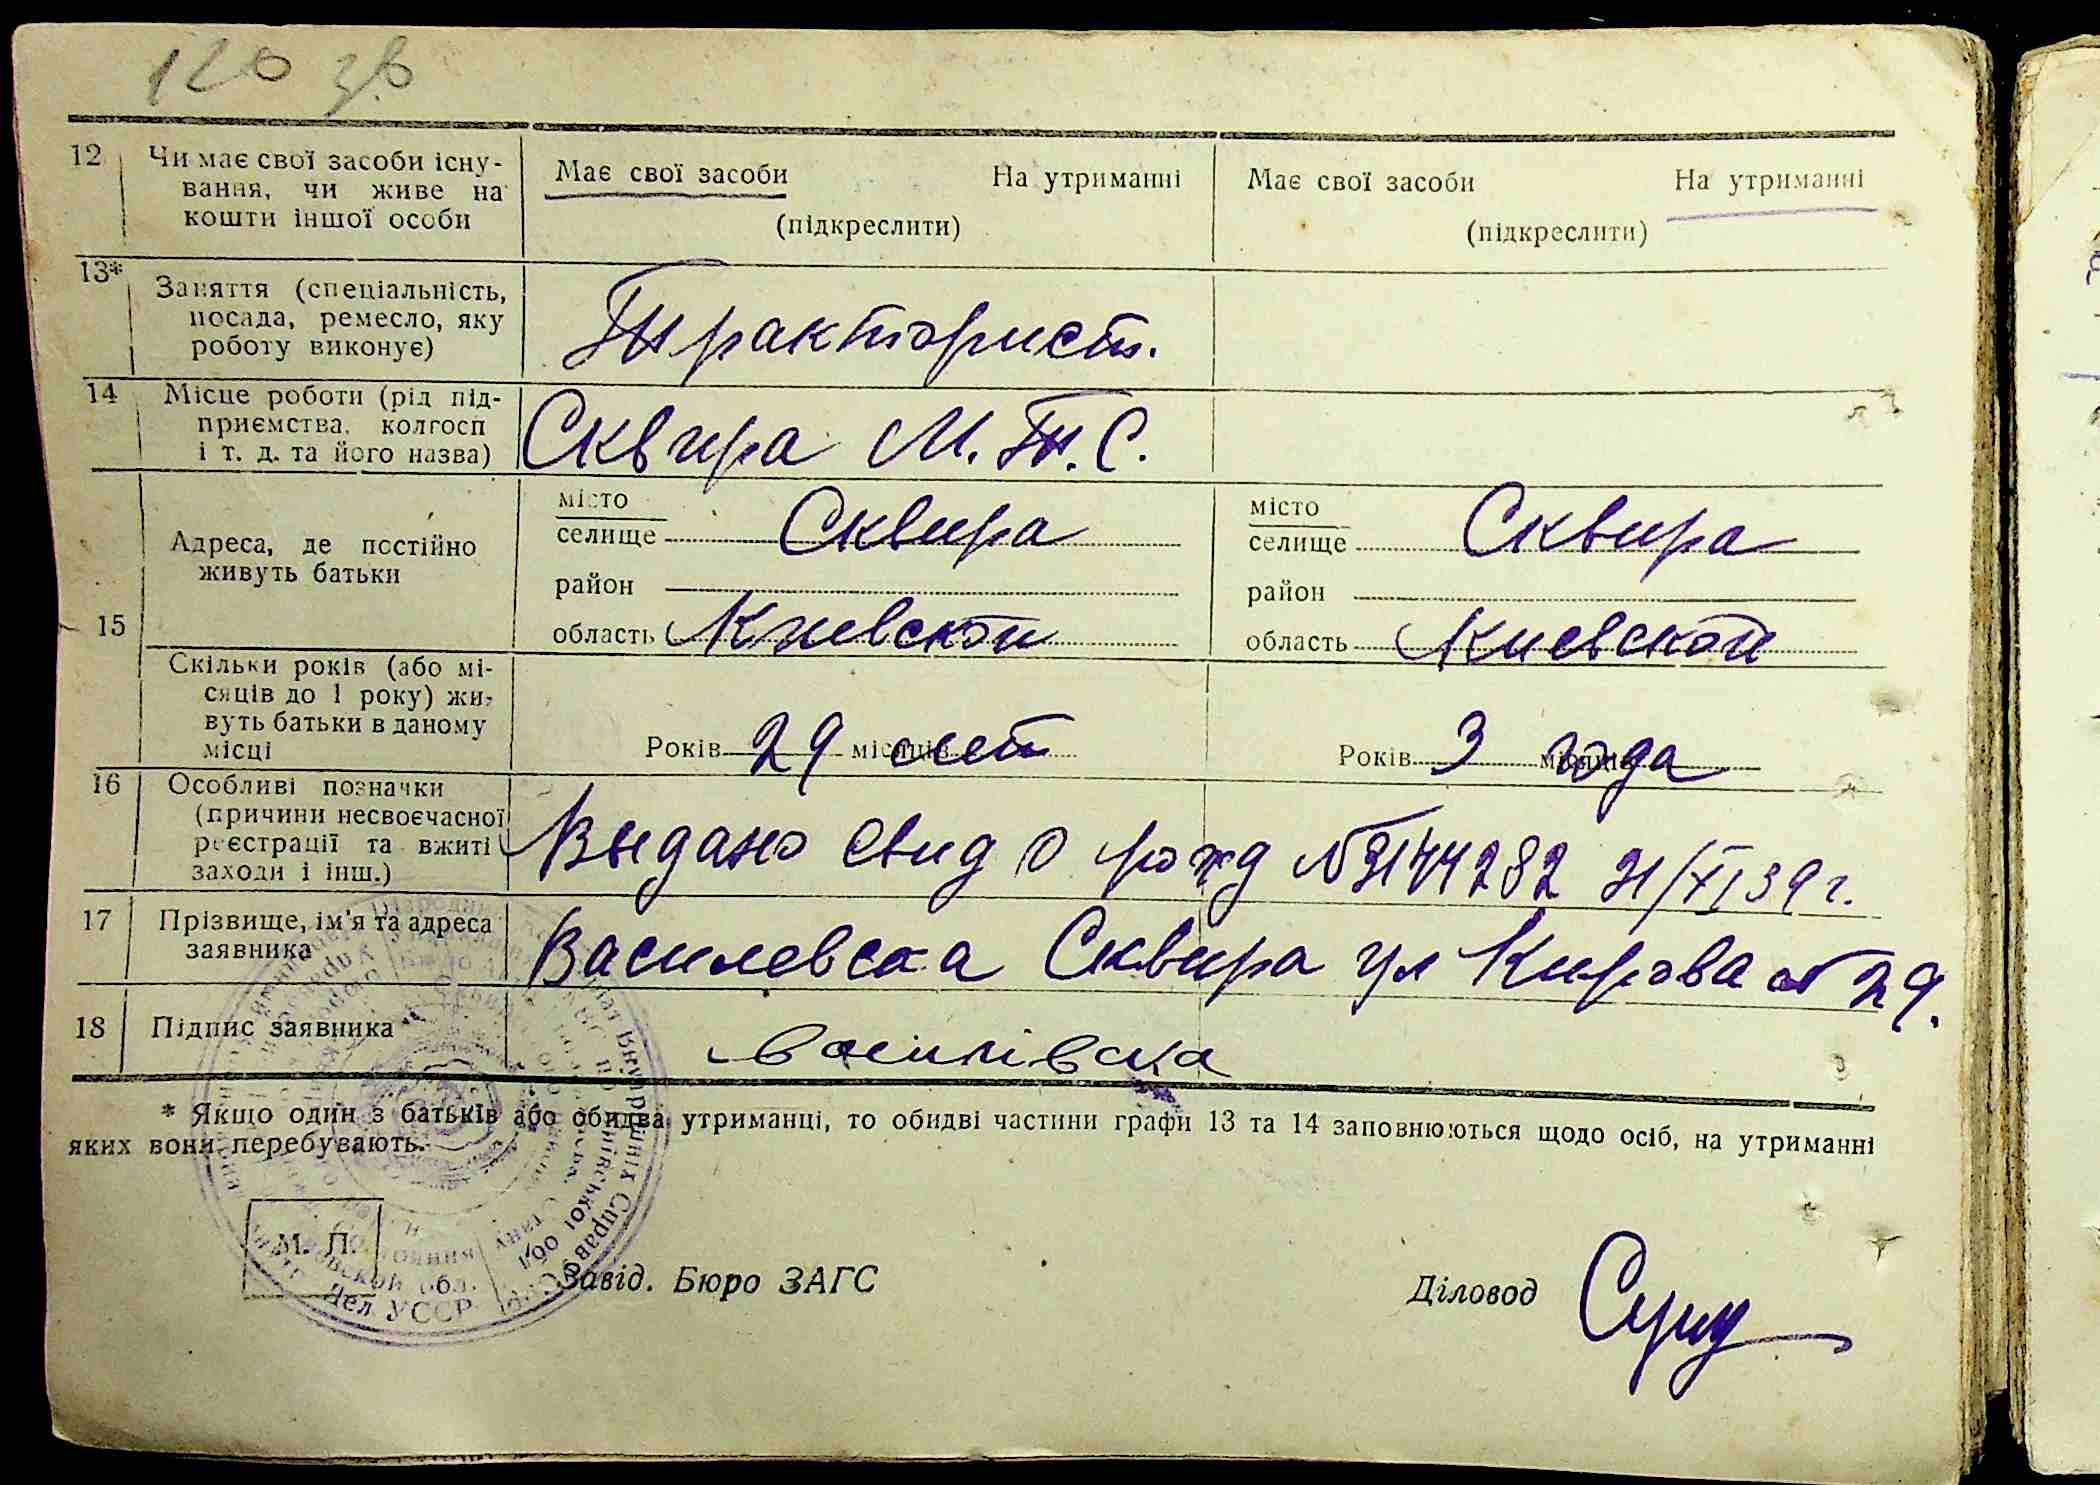 120 зв
12 Чи має свої засоби існу- Має свої засоби На утриманні Має свої засоби На утриманні
вання, чи живе на
кошти іншої особи (підкреслити) (підкреслити)
13* Заняття (спеціальність,
посада, ремесло, яку Тракторист.
роботу виконує)
14 Місце роботи (рід під-
приємства, колгосп Сквира М.Т.С.
і т. д. та його назва)
15 Адреса, де постійно
живуть батьки
місто
селище Сквира
район
область Киевской
місто
селище Сквира
район
область Киевской
Скільки років (або мі-
сяців до 1 року) жи-
вуть батьки в даному
місці
Років 29 місяців лет Років 3 місяців года
16 Особливі позначки
(причини несвоєчасної
реєстрації та вжиті
заходи і інш.)
Выдано свид о рожд № 3144282 21/XI 39 г.
17 Прізвище, ім'я та адреса
заявника
Василевска Сквира ул Кирова № 29.
18 Підпис заявника Василівска
* Якщо один з батьків або обидва утриманці, то обидві частини графи 13 та 14 заповнюються щодо осіб, на утриманні
яких вони перебувають.
М. П.
Завід. Бюро ЗАГС Діловод
Внутрішніх Справ
Дел УССР